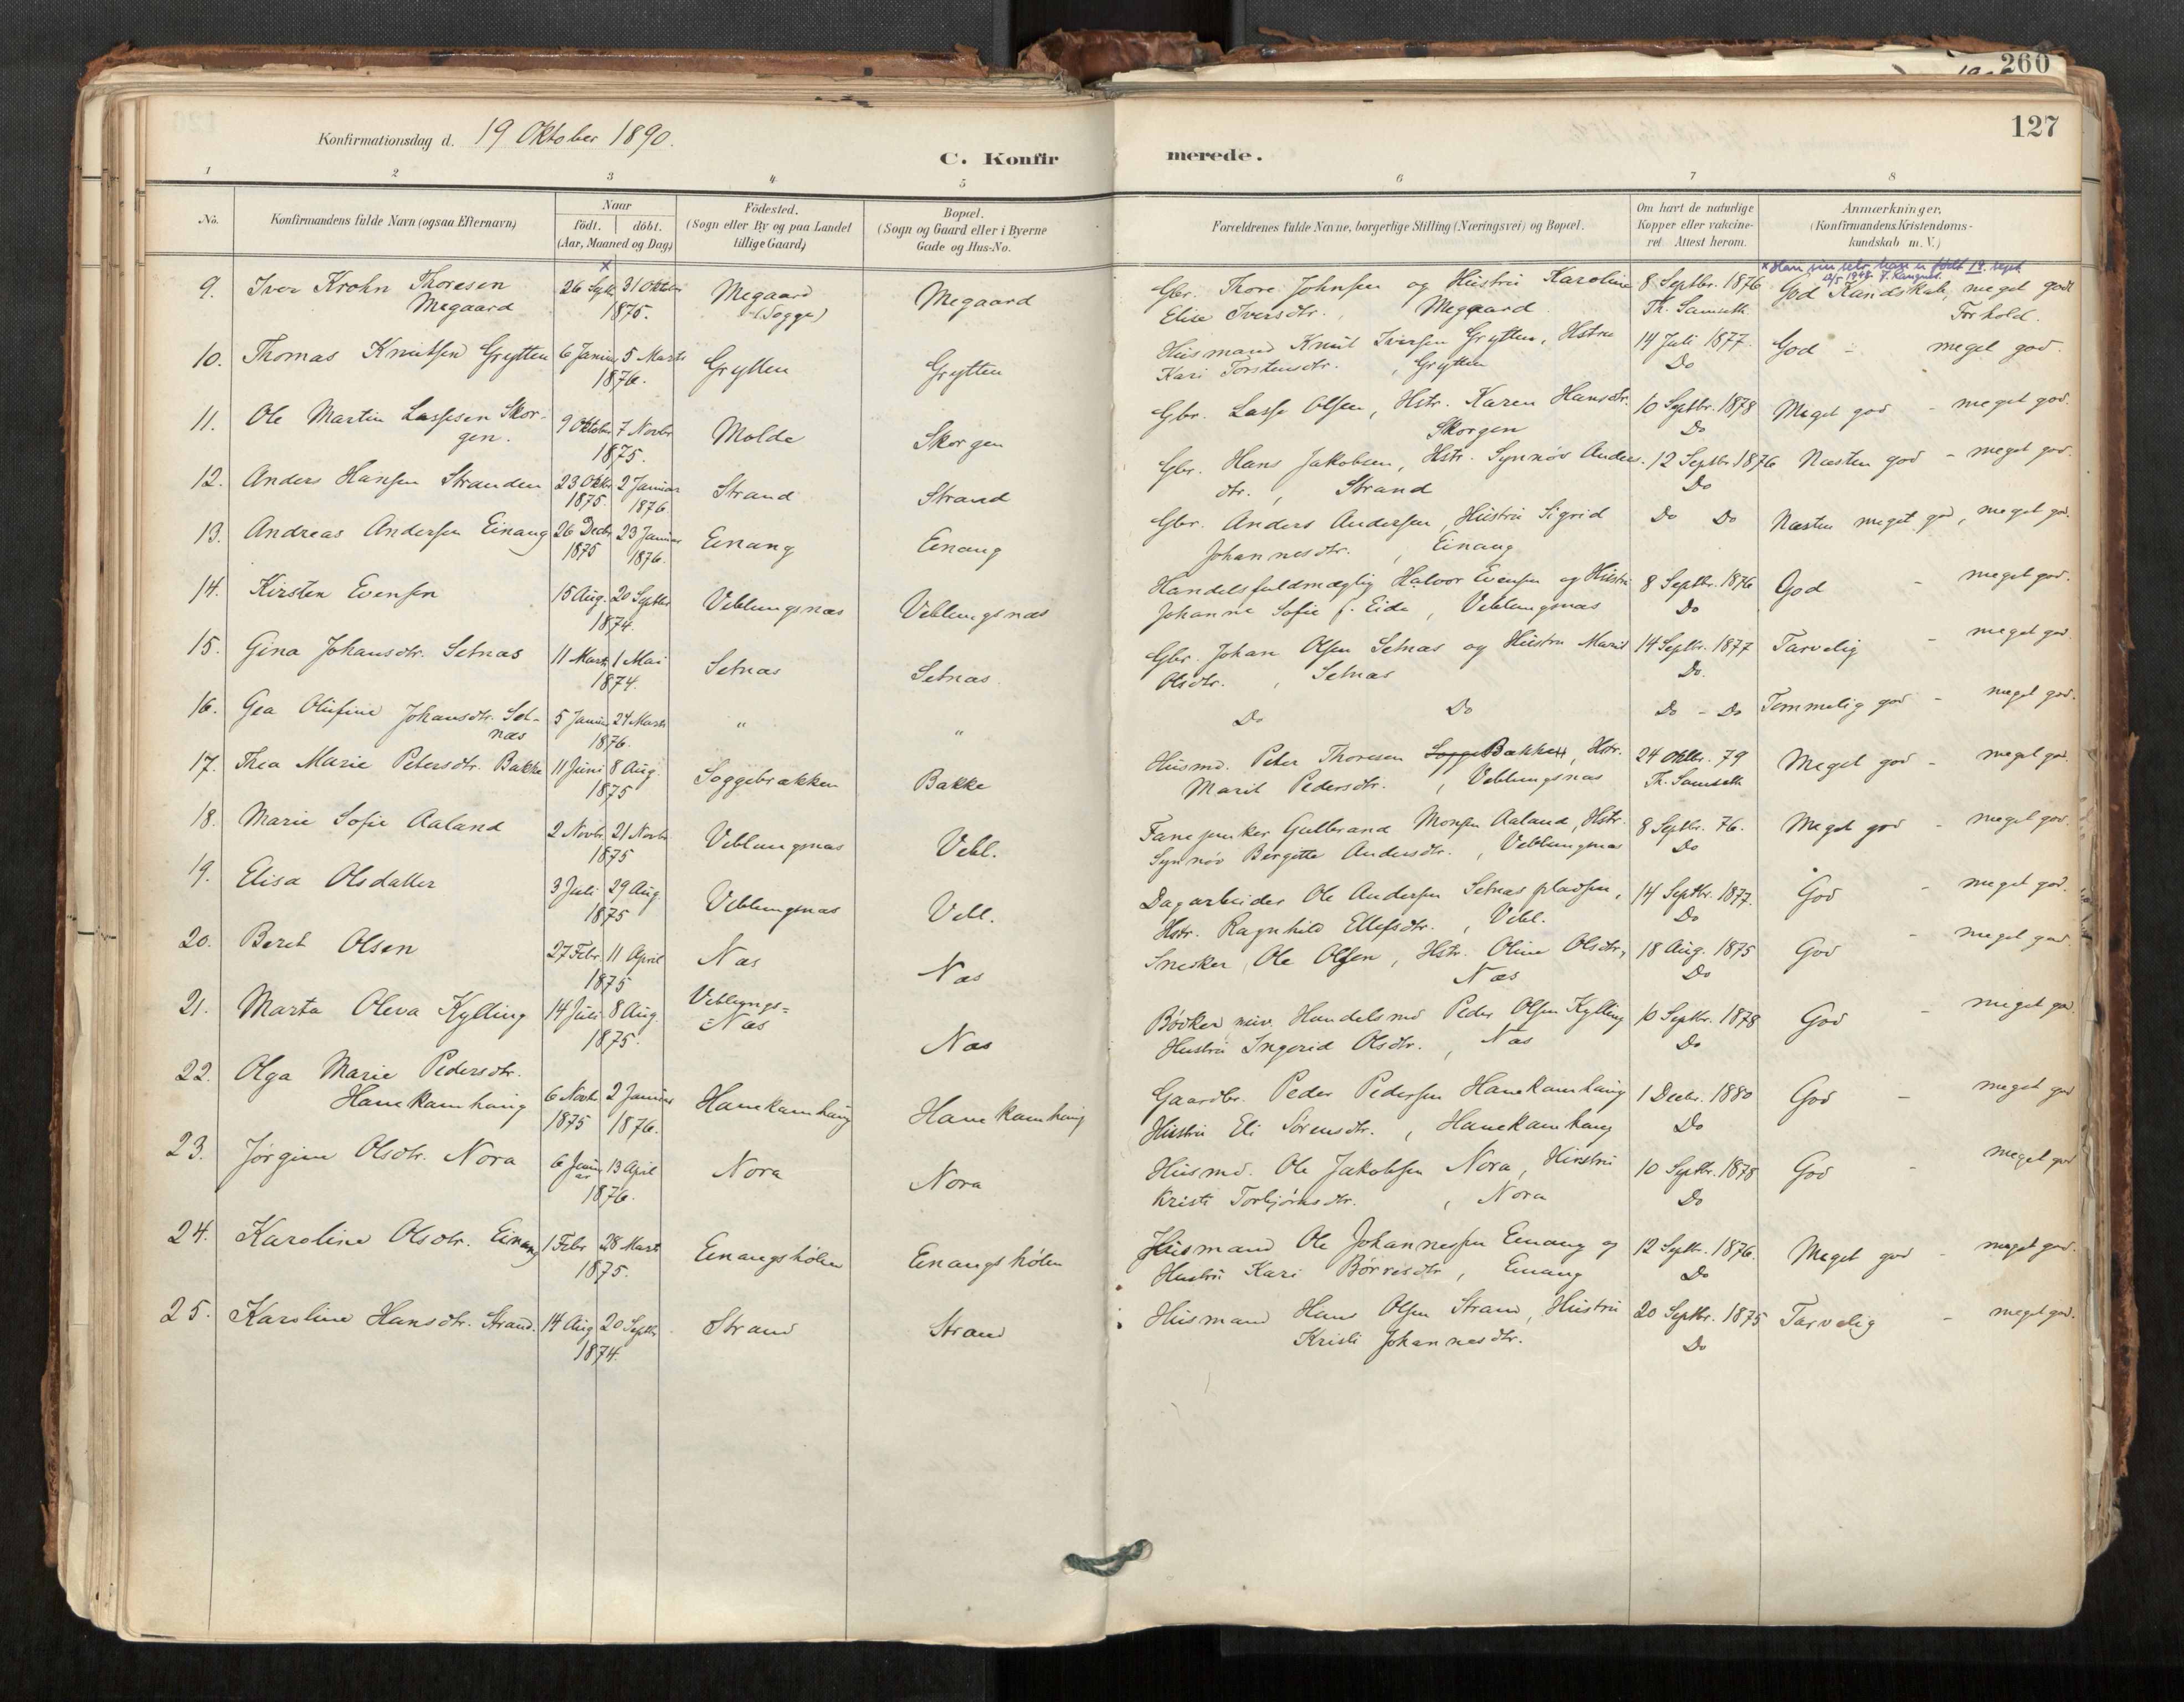 260
127
Konfirmationsdag d. 19 Oktober 1890.
C. Konfirmerede.
1 2 3 4 5 6 7 8
No.
Konfirmandens fulde Navn (ogsaa Efternavn)
Naar
födt. döbt.
(Aar, Maaned og Dag)
Födested.
(Sogn eller By og paa Landet
tillige Gaard)
Bopæl.
(Sogn og Gaard eller i Byerne
Gade og Hus-No.
Forældrenes fulde Navne, borgerlige Stilling (Næringsvei) og Bopæl.
Om havt de naturlige
Kopper eller vakcine-
ret. Attest herom.
Anmærkninger,
(Konfirmandens Kristendoms-
kundskab m. V.)
x Han selv han er født 19. sept.
9. Iver Krohn Thoresen x 26 Septb. 31 Oktober Megaard Megaard Gbr. Thore Johnsen og Hustru Karoline 8 Septbr. 1876 God Kundskab, meget godt
Megaard 1875. (Sogge) Elise Iversdtr. , Megaard Th. Samseth Forhold.
10. Thomas Knutsen Grytten 6 Januar 5 Marts Grytten Grytten Husmand Knut Iversen Grytten, Hstru 14 Juli 1877. God - meget god.
1876. Kari Torstensdtr. , Grytten Do
11. Ole Martin Lassesen Skor- 9 Oktober 7 Novbr Molde Skorgen Gbr. Lasse Olsen, Hstr. Karen Hansdtr. 10 Septbr. 1878 Meget god - meget god.
gen. 1875. Skorgen Do
12. Anders Hansen Stranden 23 Oktbr 2 Januar Strand Strand Gbr. Hans Jakobsen, Hstr. Synnöv Anders- 12 Septbr 1876 Næsten god - meget god.
1875. 1876. dtr. , Strand Do
13. Andreas Andersen Einang 26 Decbr 23 Januar Einang Einang Gbr. Anders Andersen, Hustru Sigrid Do Do Næsten meget god, meget god.
1875 1876. Johannesdtr. , Einang
14. Kirsten Evensen 15 Aug. 20 Septbr Veblungsnæs Veblungsnæs Handelsfuldmægtig Halvor Evensen og Hustru 8 Septbr. 1876 God - meget god.
1874. Johanne Sofie f. Eide, Veblungsnæs Do
15. Gina Johansdtr. Setnæs 11 Marts 1 Mai Setnæs Setnæs. Gbr. Johan Olsen Setnæs og Hustru Marit 14 Septbr. 1877 Tarvelig - meget god.
1874. Olsdtr. , Setnæs Do.
16. Gea Olufine Johansdtr. Set- 5 Januar 24 Marts " " Do Do Do - Do Temmelig god - meget god.
næs 1876.
17. Thea Marie Petersdtr. Bakke 11 Juni 8 Aug. Soggebrækken Bakke Husmd. Peter Thoresen Sogge Bakken, Hstr. 24 Oktbr. 79 Meget god - meget god.
1875 Marit Pedersdtr. , Veblungsnæs Th. Samseth
18. Marie Sofie Aaland 2 Novbr. 21 Novbr Veblungsnæs Vebl. Fanejunker Gulbrand Monsen Aaland, Hstr. 8 Septbr. 76. Meget god - meget god.
1875 Synnöv Bergitte Andersdtr. , Veblungsnæs Do
19. Elisa Olsdatter 3 Juli 29 Aug Veblungsnæs Vebl. Dagarbeider Ole Andersen Setnæspladsen, 14 Septbr. 1877. God - meget god.
1875 Hstr. Ragnhild Ellefsdtr. , Vebl. Do
20. Beret Olsen 27 Febr. 11 April Næs Næs Snedker Ole Olsen, Hstr. Oline Olsdtr, 18 Aug. 1875 God - meget god.
1875 Næs Do
21. Marta Oleva Kylling 14 Juli 8 Aug. Veblungs= Næs Bödker, nuv. Handelsmd Peder Olsen Kylling 10 Septbr. 1878 God - meget god.
1875. =Næs Hustru Ingerid Olsdtr. , Næs Do
22. Olga Marie Pedersdtr.
Hanekamhaug 6 Novbr. 2 Januar Hanekamhaug Hanekamhaug Gaardbr. Peder Pedersen Hanekamhaug 1 Decbr. 1880 God - meget god
1875 1876. Hustru Eli Sörensdtr. , Hanekamhaug Do
23. Jörgine Olsdtr. Nora 6 Januar 13 April Nora Nora Husmd. Ole Jakobsen Nora, Hustru 10 Septbr. 1878 God - meget god
1876. Kristi Torbjörnsdtr. , Nora Do
24. Karoline Olsdtr. Einang 1 Febr 28 Marts Einangshölen Einangshölen Husmand Ole Johannesen Einang og 12 Septbr. 1876. Meget god - meget god.
1875. Hustru Kari Börresdtr, Einang Do
25. Karoline Hansdtr. Strand. 14 Aug 20 Septbr Strand Strand Husmand Hans Olsen Strand, Hustru 20 Septbr. 1875 Tarvelig - meget god.
1874. Kristi Johannesdtr. Do